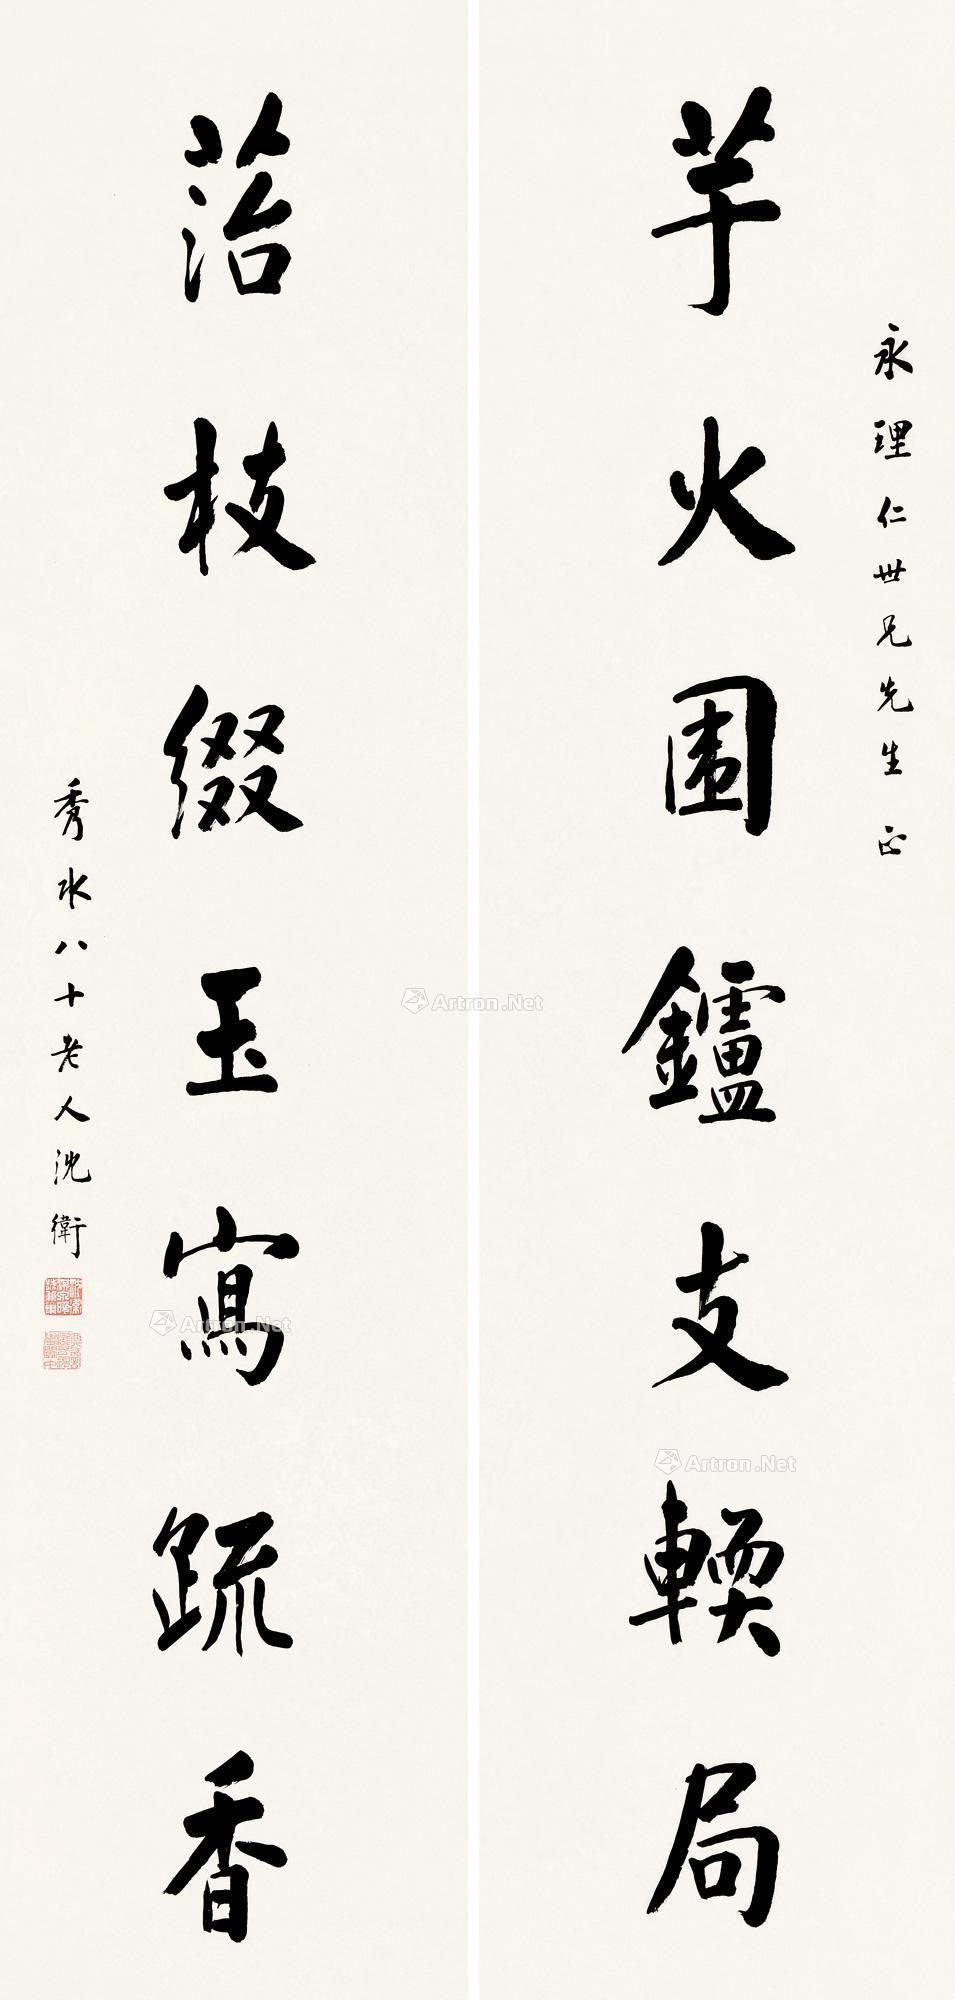 永理仁世兄先生正
芋火围鑪支輭局
萡枝缀玉寫疏香
秀水八十老人沈衛
Artron.Net
Artron.Net
Artron.Net